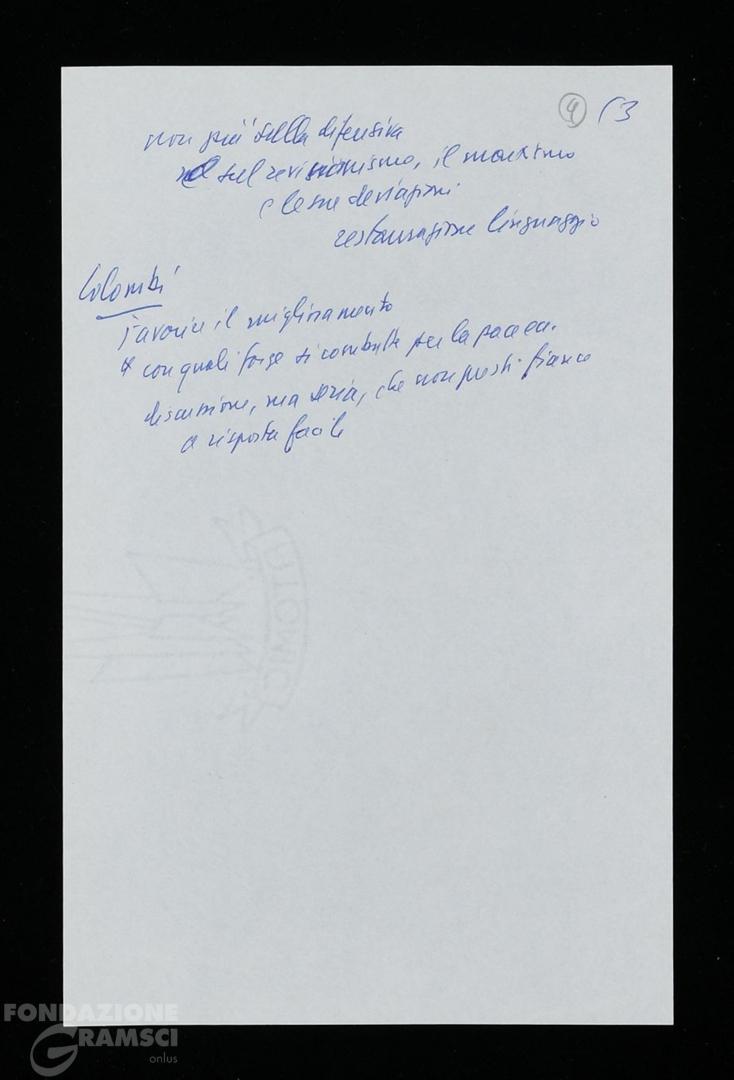 4 13
non più sulla difensiva
sul revisionismo, il marxismo
e le sue deviazioni
restaurazione linguaggio
Colombi
Favorire il miglioramento
con quali forze si combatte per la pace ecc.
discussione, ma seria, che non presti fianco
a risposta facile
FONDAZIONE
GRAMSCI
onlus